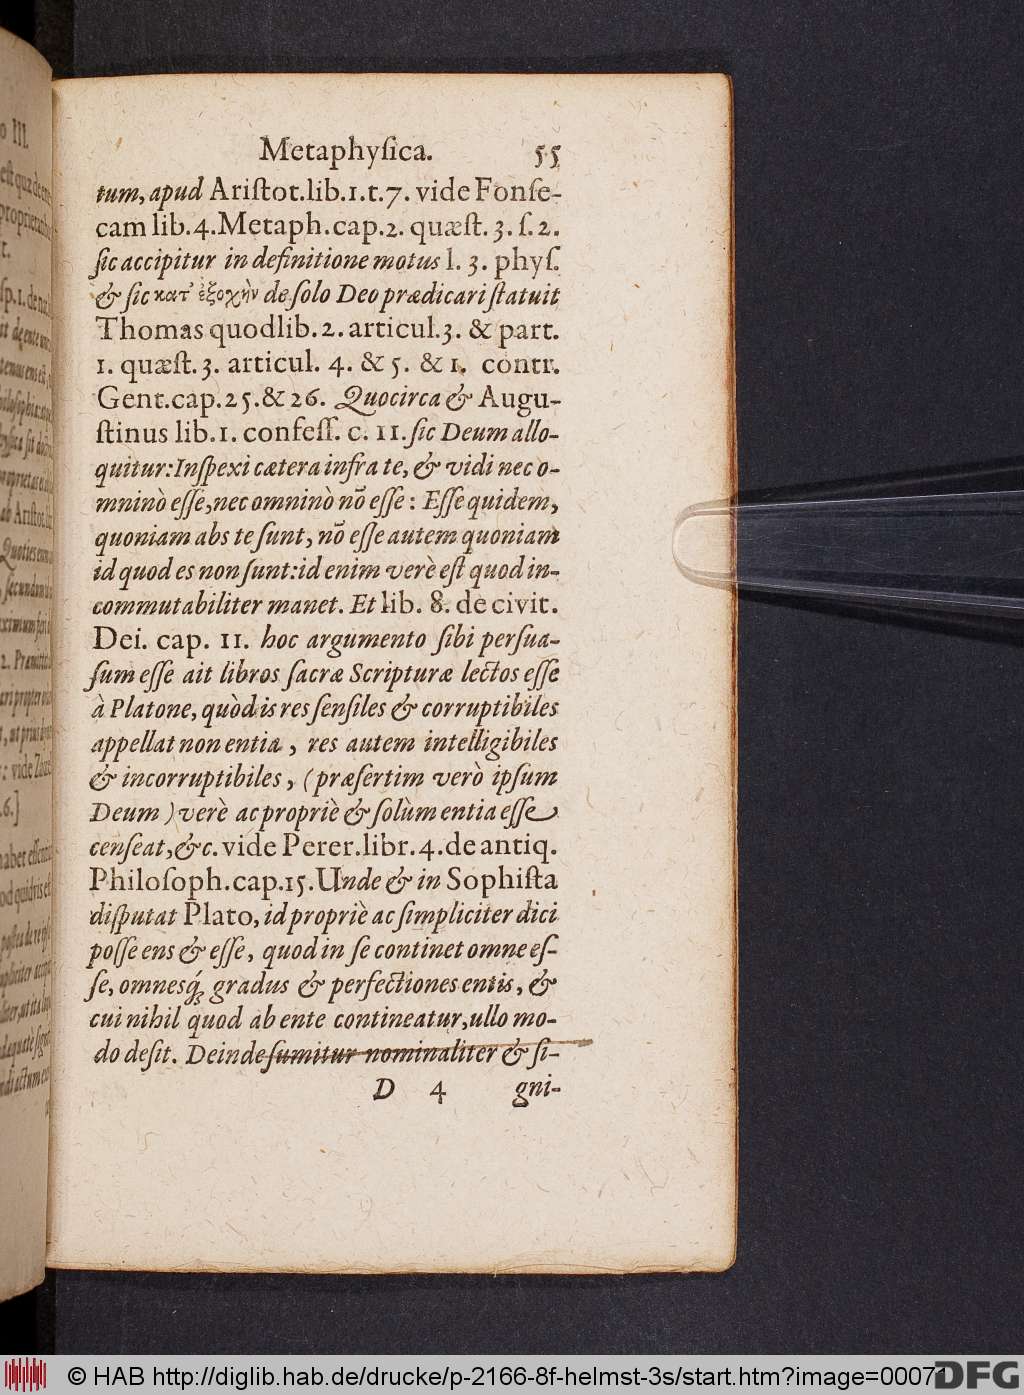 Metaphyſica. 55
tum, apud Ariſtot.lib.1.t.7. vide Fonſe-
cam lib.4.Metaph.cap.2. quæſt. 3. ſ. 2.
ſic accipitur in definitione motus l. 3. phyſ.
& ſic κατ' ἐξοχὴν de ſolo Deo prædicari ſtatuit
Thomas quodlib. 2. articul.3. & part.
1. quæſt. 3. articul. 4. & 5. & 1. contr.
Gent.cap.25.& 26. Quocirca & Augu-
ſtinus lib.1. confeſſ. c. 11. ſic Deum allo-
quitur: Inſpexi cætera infra te, & vidi nec o-
mninò eſſe, nec omninò nō eſſe: Eſſe quidem,
quoniam abs te ſunt, nō eſſe autem quoniam
id quod es non ſunt: id enim verè eſt quod in-
commutabiliter manet. Et lib. 8. de civit.
Dei. cap. 11. hoc argumento ſibi perſua-
ſum eſſe ait libros ſacræ Scripturæ lectos eſſe
à Platone, quòd is res ſenſiles & corruptibiles
appellat non entia, res autem intelligibiles
& incorruptibiles, (præſertim verò ipſum
Deum) verè ac propriè & ſolùm entia eſſe
cenſeat, &c. vide Perer.libr.4.de antiq.
Philoſoph.cap.15. Unde & in Sophiſta
diſputat Plato, id propriè ac ſimpliciter dici
poſſe ens & eſſe, quod in ſe continet omne eſ-
ſe, omnesq́; gradus & perfectiones entis, &
cui nihil quod ab ente contineatur, ullo mo-
do deſit. Deinde ſumitur nominaliter & ſi-
D 4 gni-
© HAB http://diglib.hab.de/drucke/p-2166-8f-helmst-3s/start.htm?image=00071
DFG